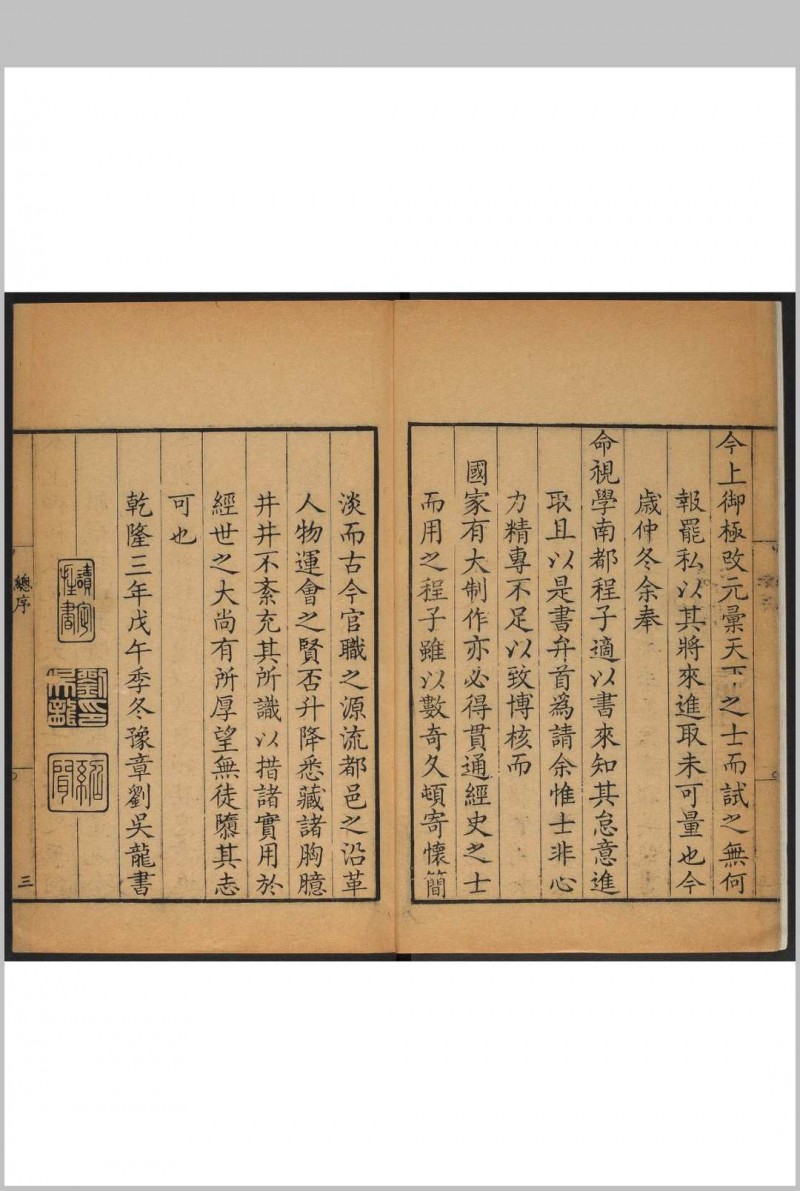 今上御極改元彙天下之士而試之無何
報罷私以其將來進取未可量也今
歳仲冬余奉
命視學南都程子適以書來知其怠意進
取且以是書弁首爲請余惟士非心
力精專不足以致博核而
國家有大制作亦必得貫通經史之士
而用之程子雖以數奇久頓寄懷簡
淡而古今官職之源流都邑之沿革
人物運會之賢否升降悉藏諸胸臆
井井不紊充其所識以措諸實用於
經世之大尚有所厚望無徒隳其志
可也
乾隆三年戊午季冬豫章劉吳龍書
劉吳龍印
紹聞
總序
三